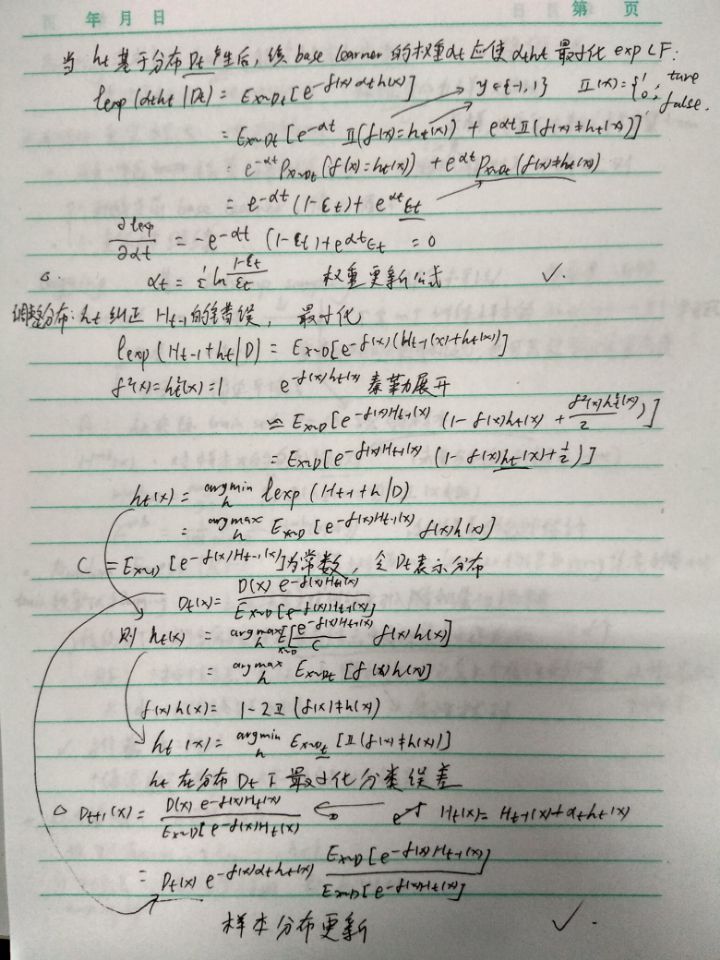 年 月 日 第 页
当 ht 基于分布 Dt 产生后, 该 base learner 的权重 αt 应使 αtht 最小化 exp LF:
ℓexp(αtht|Dt) = Ex~Dt[e^{-f(x)αtht(x)}] y∈{-1,1} 𝕀(x)={1, ture 0, false.
= Ex~Dt[e^{-αt} 𝕀(f(x)=ht(x)) + e^{αt} 𝕀(f(x)≠ht(x))]
= e^{-αt} Px~Dt(f(x)=ht(x)) + e^{αt} Px~Dt(f(x)≠ht(x))
= e^{-αt}(1-εt) + e^{αt}εt
∂ℓexp/∂αt = -e^{-αt}(1-εt)+e^{αt}εt = 0
αt = ½ ln (1-εt)/εt 权重更新公式 ✓.
调整分布: ht 纠正 Ht-1 的错误, 最小化
ℓexp(Ht-1+ht|D) = Ex~D[e^{-f(x)(Ht-1(x)+ht(x))}]
f²(x)=ht²(x)=1 e^{-f(x)ht(x)} 泰勒展开
≃ Ex~D[e^{-f(x)Ht-1(x)} (1-f(x)ht(x) + f²(x)ht²(x)/2)]
= Ex~D[e^{-f(x)Ht-1(x)} (1-f(x)ht(x)+½)]
ht(x) = argmin h ℓexp(Ht-1+h|D)
= argmax h Ex~D[e^{-f(x)Ht-1(x)} f(x)h(x)]
C = Ex~D[e^{-f(x)Ht-1(x)}]为常数, 令 Dt 表示分布
Dt(x) = D(x) e^{-f(x)Ht-1(x)} / Ex~D[e^{-f(x)Ht-1(x)}]
则 ht(x) = argmax h Ex~D[e^{-f(x)Ht-1(x)}/C f(x)h(x)]
= argmax h Ex~Dt[f(x)h(x)]
f(x)h(x) = 1-2𝕀(f(x)≠h(x))
ht(x) = argmin h Ex~Dt[𝕀(f(x)≠h(x))]
ht 在分布 Dt 下最小化分类误差
Dt+1(x) = D(x) e^{-f(x)Ht(x)} / Ex~D[e^{-f(x)Ht(x)}] Ht(x) = Ht-1(x)+αtht(x)
= Dt(x) e^{-f(x)αtht(x)} Ex~D[e^{-f(x)Ht-1(x)}] / Ex~D[e^{-f(x)Ht(x)}]
样本分布更新 ✓.